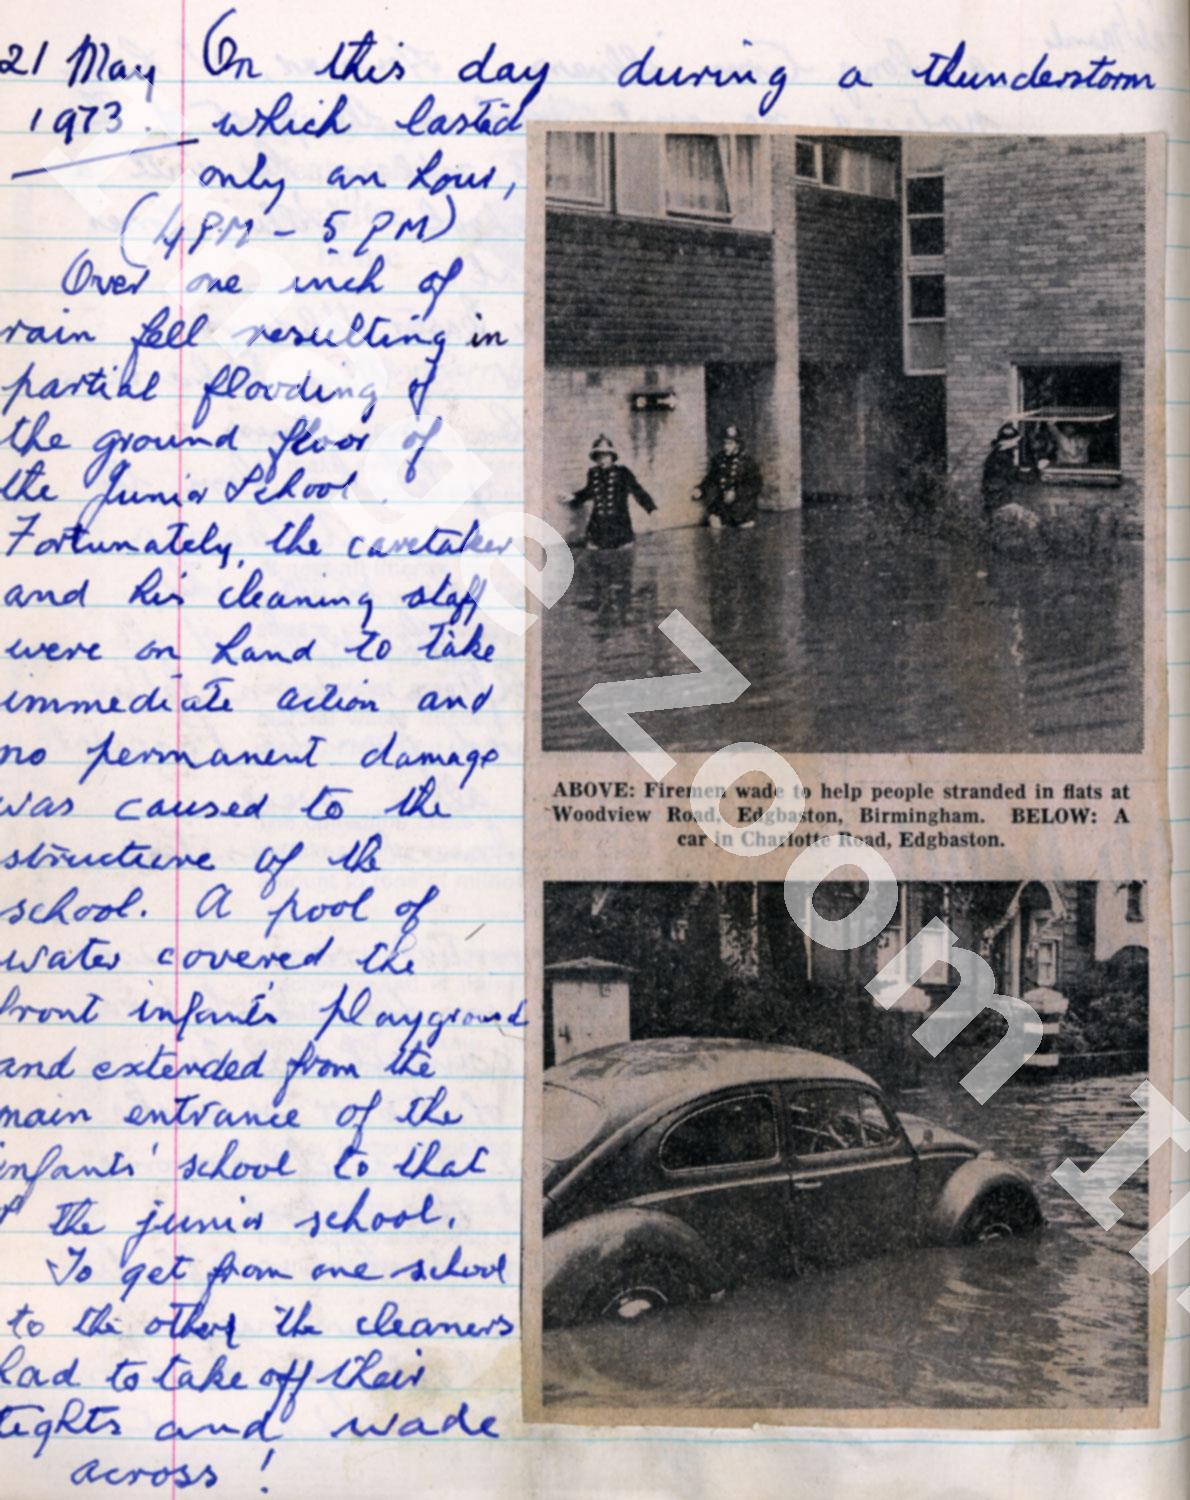 21 May On this day during a thunderstorm
1973. which lasted
only an hour,
(4 PM - 5 PM)
Over one inch of
rain fell resulting in
partial flooding of
the ground floor of
the Junior School.
Fortunately, the caretaker
and his cleaning staff
were on hand to take
immediate action and
no permanent damage
was caused to the
structure of the
school. A pool of
water covered the
front infants' playground
and extended from the
main entrance of the
infants' school to that
of the junior school.
To get from one school
to the other the cleaners
had to take off their
tights and wade
across!
ABOVE: Firemen wade to help people stranded in flats at
Woodview Road, Edgbaston, Birmingham. BELOW: A
car in Charlotte Road, Edgbaston.
Image Zoom